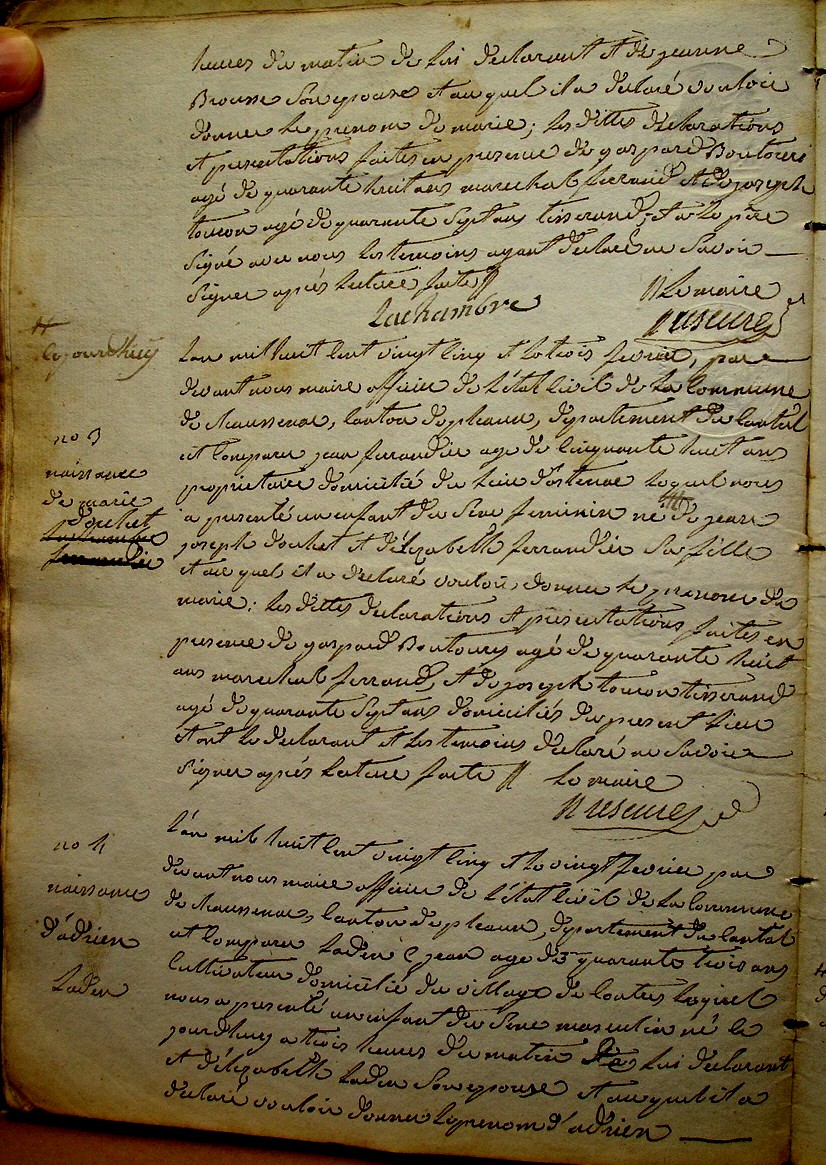 heures du matin de lui declarant et de jeanne
Brousse son epouse et au quel il a declaré vouloir
donner le prenom de marie; les dittes declarations
et presentations faites en presence de gaspard Boutours
agé de quarante huit ans marechal ferrand et de joseph
toucon agé de quarante sept ans tisserand, et a le père
signé avec nous les temoins ayant declaré ne savoir
signer après lecture faite //
Lachambre
le maire
#
ce jourdhuy
L'an mil huit cent vingt cinq et le trois fevrier, par
devant nous maire officier de l'état civil de la Commune
de chaussenac, canton de pleaux, département du cantal
est comparu jean ferrandie age de cinquante huit ans
propriétaire domicilié du lieu d'ostenac lequel nous
#
a presenté un enfant du sexe feminin né de jean
joseph douhet et d'Elizabeth ferrandier sa fille
et au quel il a declaré vouloir donner le prenom de
marie; les dittes declarations et presentations faites en
presence de gaspard Boutours agé de quarante huit
ans marechal ferrand, et de joseph toucon tisserand
agé de quarante sept ans domiciliés du present lieu
et ont le declarant et les temoins declaré ne savoir
signer après lecture faite // le maire
no 3
naissance
de marie
douhet
ferrandie
L'an mil huit cent vingt cinq et le vingt fevrier par
devant nous maire officier de l'état civil de la Commune
de chaussenac, canton de pleaux, département du cantal
est comparu Laden jean age de quarante trois ans
cultivateur domicilié du village de contres lequel
nous a presenté un enfant du sexe masculin né le
jourdhuy a trois heures du matin de lui declarant
et d'élizabeth Laden son epouse et au quel il a
declaré vouloir donner le prenom d'adrien
no 4
naissance
d'adrien
Laden